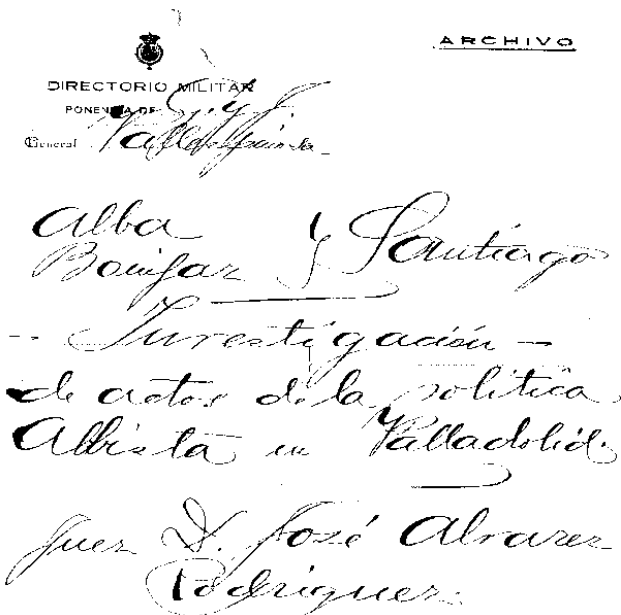 ARCHIVO
DIRECTORIO MILITAR
PONENCIA DE G. y J.
General Vallespinosa
Alba
Bonifaz } Santiago
- Investigación -
de actos de la política
Albista en Valladolid.
Juez D. José Alvarez
Rodriguez.